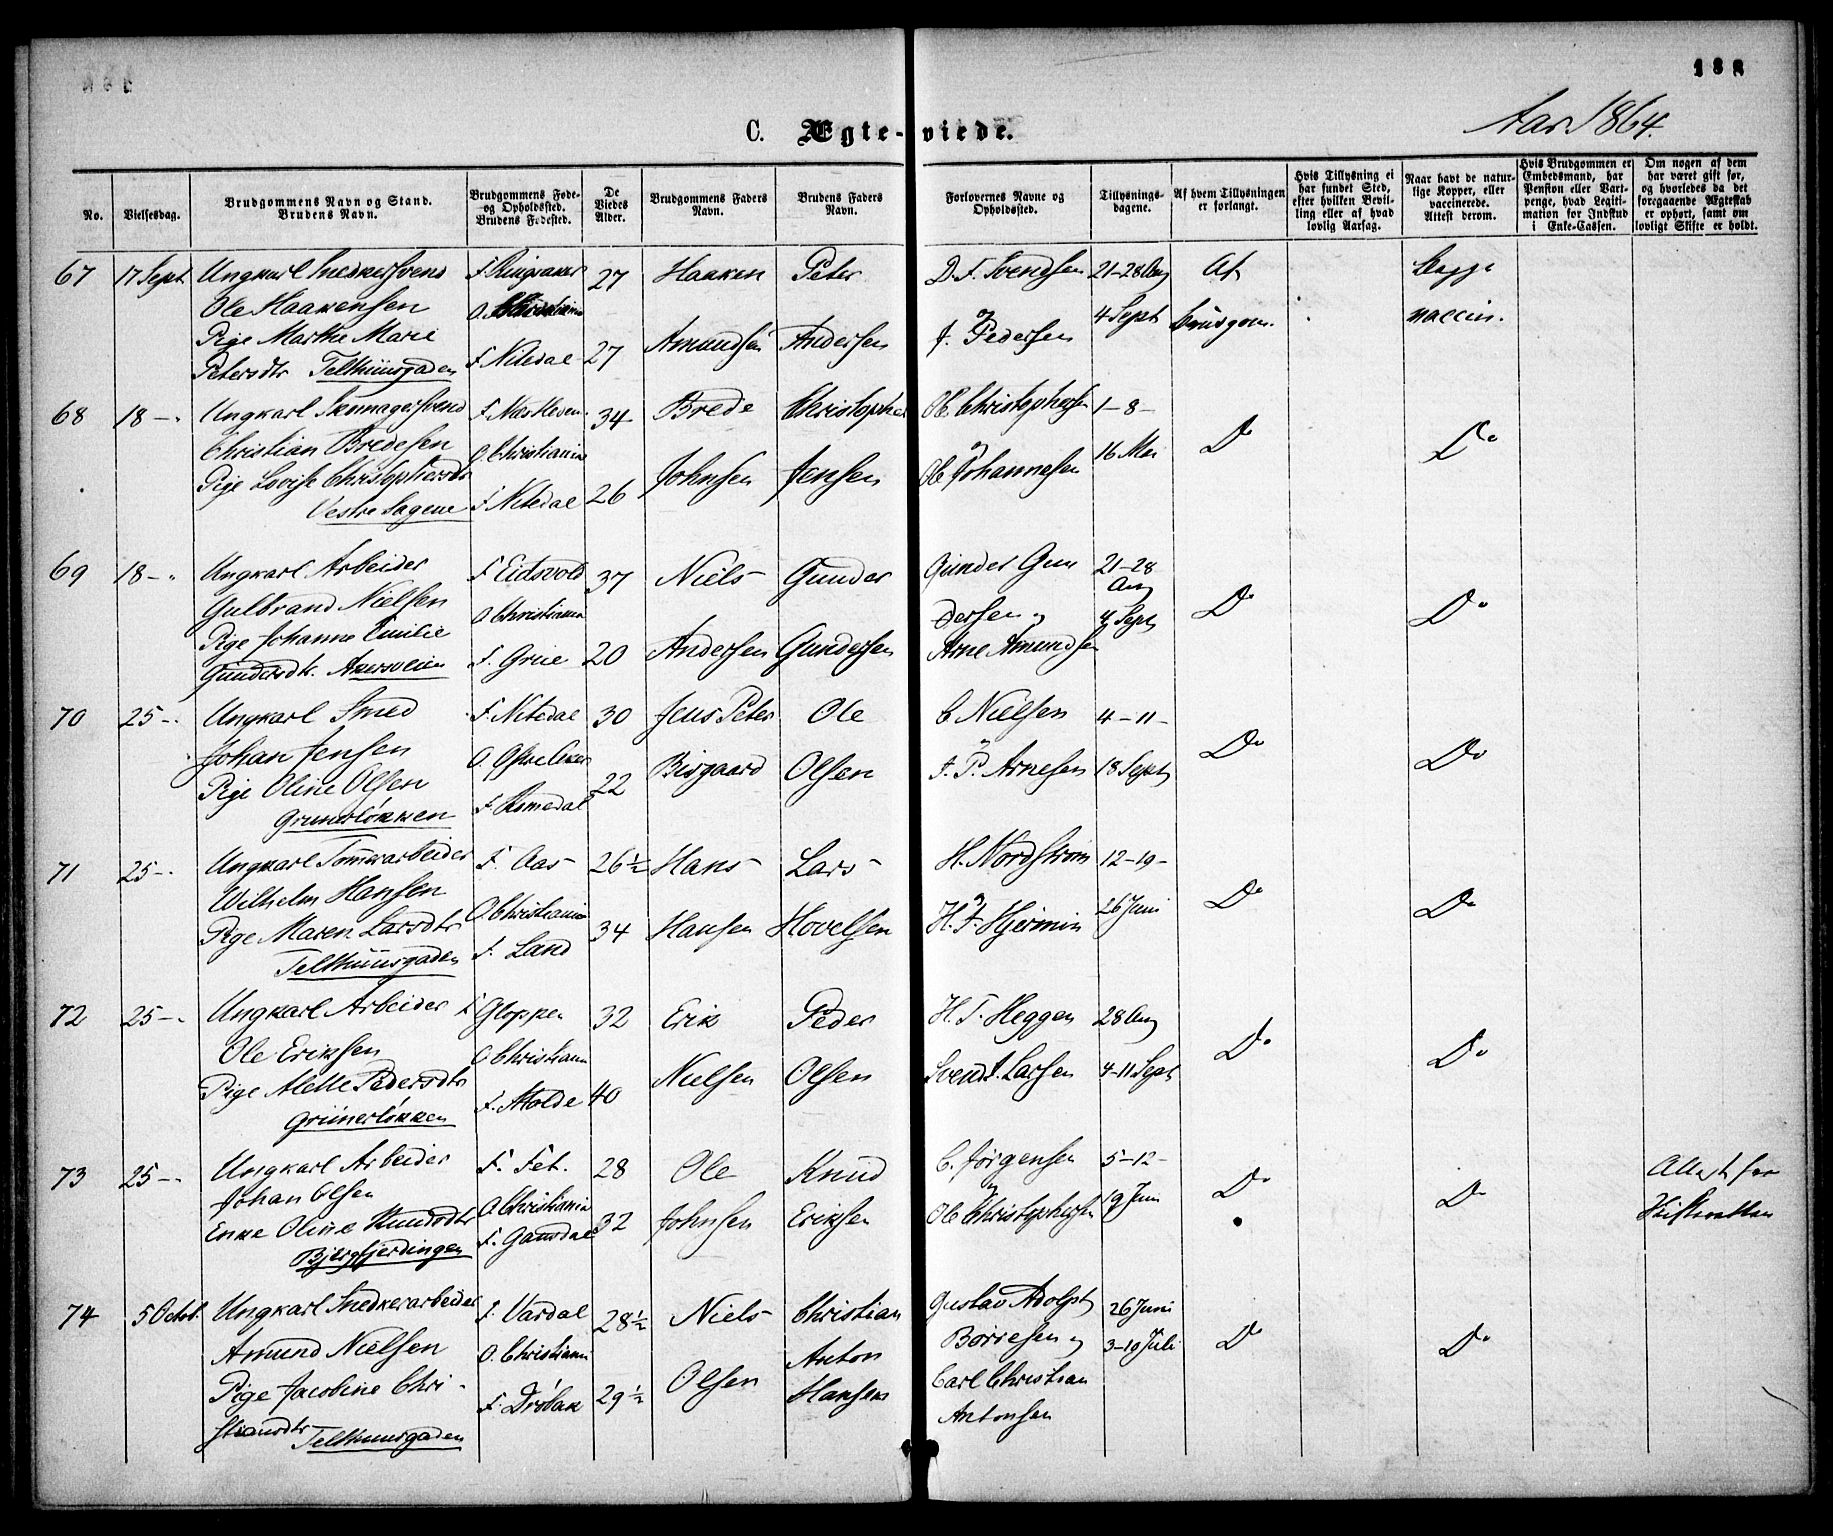 138
Aar 1864.
C. Ægte-viede.
No.
Vielsesdag.
Brudgommens Navn og Stand.
Brudens Navn.
Brudgommens Føde-
og Opholdssted.
Brudens Fødested.
De
Viedes
Alder.
Brudgommens Faders
Navn.
Brudens Faders
Navn.
Forlovernes Navne og
Opholdssted.
Tillysnings-
dagene.
Af hvem Tillysningen
er forlangt.
Hvis Tillysning ei
har fundet Sted,
efter hvilken Bevil-
ling eller af hvad
lovlig Aarsag.
Naar havt de natur-
lige Kopper, eller
vaccinerede.
Attest derom.
Hvis Brudgommen er
Embedsmand, har
Pension eller Vart-
penge, hvad Legiti-
mation for Indskud
i Enke-Cassen.
Om nogen af dem
har været gift før,
og hvorledes da det
foregaaende Ægteskab
er ophørt, samt om
lovligt Skifte er holdt.
67 17 Sept Ungkarl Snedkersvend F. Ringsaker 27 Haaken Peter D. F. Svendsen 21-28 Aug Af Begge
Ole Haakensen O. Christiania og 4 Sept Brudgom. vaccin.
Pige Marthe Marie Amundsen Andersen J. Pedersen
Petersdtr Telthuusgaden F. Nitedal 27
68 18 -" Ungkarl Skomagersvend F. Nes Heden 34 Brede Christopher Ole Christophersen 1-8-
Christian Bredesen O. Christiania og 16 Mai Do Do
Pige Lovise Christophersdtr Johnsen Jensen Ole Johannesen
Vestre Sagene F. Nitedal 26
69 18 -" Ungkarl Arbeider F. Eidsvold 37 Niels Gunder Gunder Gun 21-28 Aug
Gulbrand Nielsen O. Christiania dersen og 4 Sept Do Do
Pige Johanne Emilie F. Grue 20 Andersen Gundersen Arne Amundsen
Gundersdtr. Akersveien
70 25 -" Ungkarl Smed F. Nitedal 30 Jens Peter Ole C Nielsen 4-11-
Johan Jensen O. Østre Aker og Do Do
Pige Oline Olsen 22 Bisgaard Olsen F. P. Arnesen 18 Sept
Grunerløkken F. Romedal
71 25 -" Ungkarl Tømrarbeider F. Aas 26½ Hans Lars H. Nordstrøm 12-19-
Wilhelm Hansen O. Christiania og 26 Juni Do Do
Pige Maren Larsdtr 34 Hansen Hovelsen H. F. Hjermin
Telthuusgaden F. Land
72 25 -" Ungkarl Arbeider F Gloppen 32 Erik Peder H. T. Heggen 28 Aug
Ole Eriksen O Christiania Do Do
Pige Alette Pedersdtr F. Molde 40 Nielsen Olsen Svend L. Larsen 4-11 Sept
Grünerløkken
73 25 -" Ungkarl Arbeider F. Fet. 28 Ole Knud C. Jørgensen 5-12- Attest fra
Johan Olsen O. Christiania og Do Do
Enke Oline Knudsdtr 32 Johnsen Eriksen Ole Christophersen 19 Juni Skifteretten
Bjergfjerdingen F. Gausdal
74 5 Octob. Ungkarl Snedkerarbeider F. Vardal 28½ Niels Christian Gustav Adolph 26 Juni
Amund Nielsen O. Christiania Anton Borresen og 3-10 Juli Do Do
Pige Jacobine Chri- F. Drøbak 29½ Olsen Hansen Carl Christian
stiansdtr Telthuusgaden Antonsen